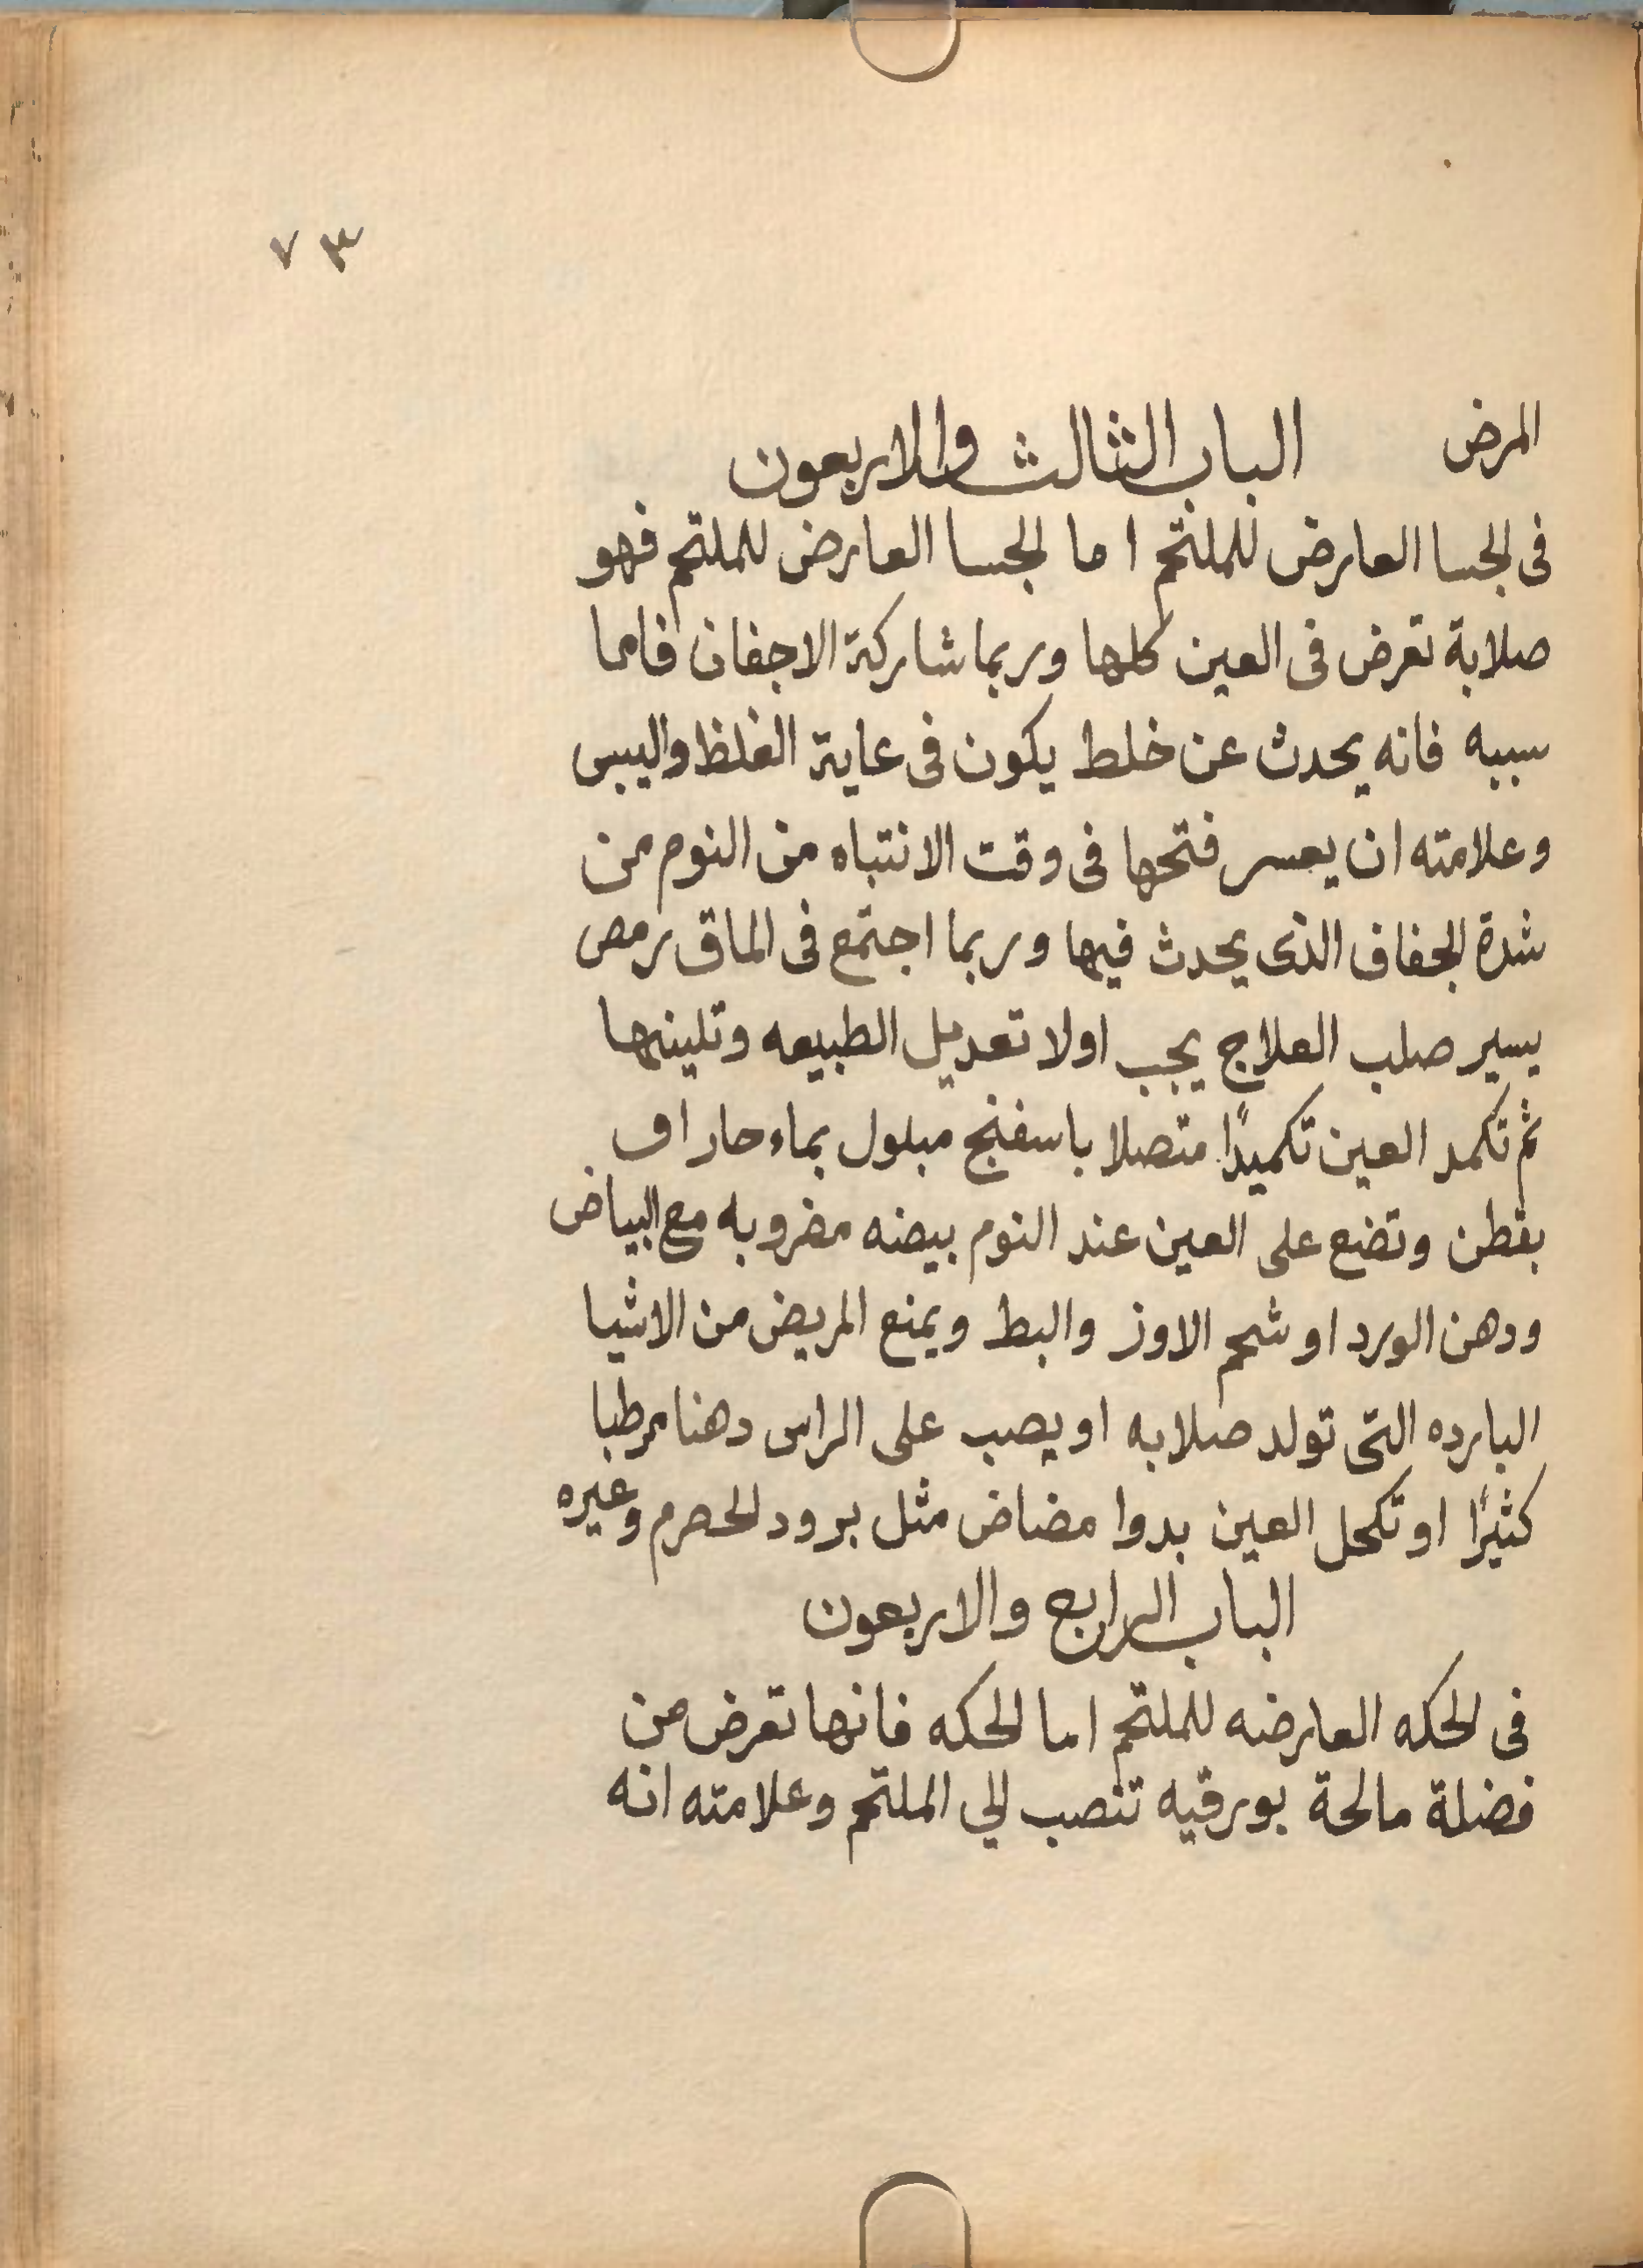 ٧٣
المرض الباب الثالث والاربعون
فى الجسا العارض للملتحم اما الجسا العارض للملتحم فهو
صلابة تعرض فى العين كلها وربما شاركة الاجفان فاما
سببه فانه يحدث عن خلط يكون فى عاية الغلظ واليبس
وعلامته ان يعسر فتحها فى وقت الانتباه من النوم من
شدة الجفاف الذى يحدث فيها وربما اجتمع فى الماق رمص
يسير صلب العلاج يجب اولا تعديل الطبيعه وتلينها
ثم تكمد العين تكميدًا متصلا باسفنج مبلول بماء حار اف
بقطن وتضع على العين عند النوم بيضه مضروبه مع البياض
ودهن الورد او شحم الاوز والبط ويمنع المريض من الاشيا
البارده التى تولد صلابه او يصب على الراس دهنا مرطبا
كثيرًا او تكحل العين بدوا مضاض مثل برود الحصرم وعيره
الباب الرابع والاربعون
فى الحكه العارضه للملتحم اما الحكه فانها تعرض من
فضلة مالحة بورقيه تنصب الي الملتحم وعلامته انه